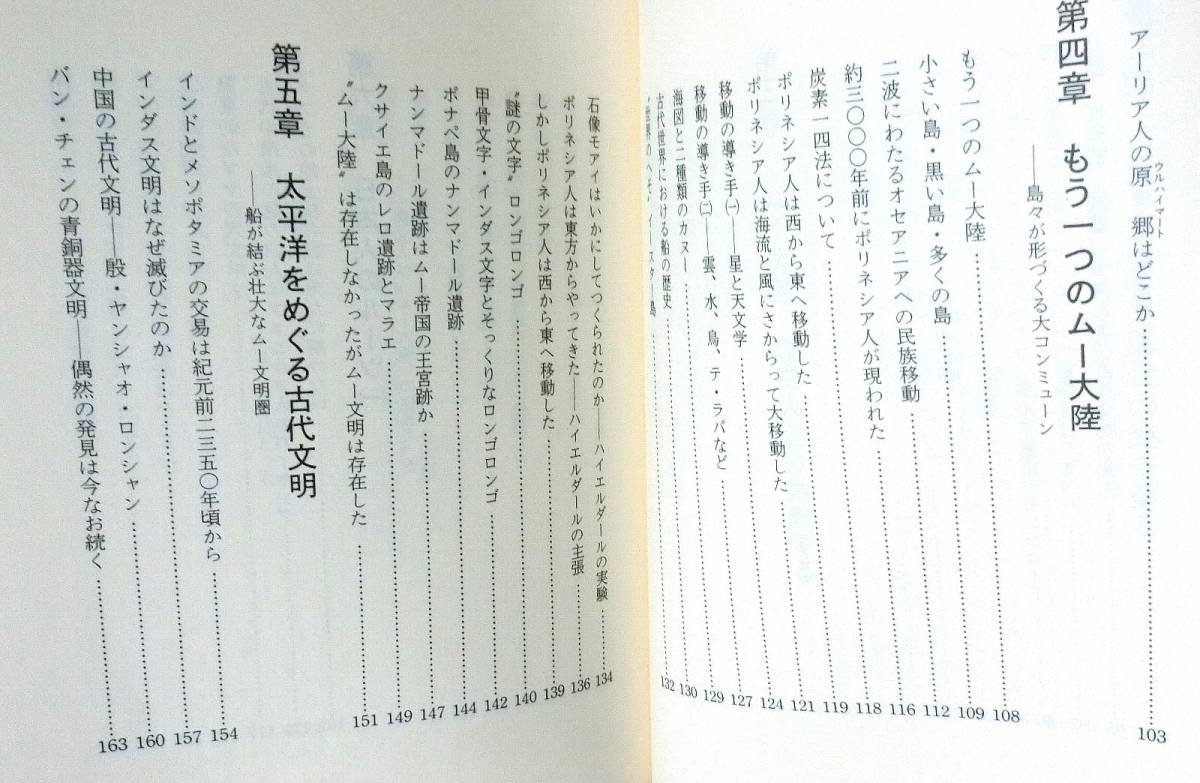 アーリア人の原郷はどこか……103
ウルハイマート
第四章　もう一つのムー大陸
――島々が形づくる大コンミューン
もう一つのムー大陸……108
小さい島・黒い島・多くの島……109
二波にわたるオセアニアへの民族移動……112
約三〇〇〇年前にポリネシア人が現われた……116
炭素一四法について……118
ポリネシア人は西から東へ移動した……119
ポリネシア人は海流と風にさからって大移動した……121
移動の導き手(一)――星と天文学……124
移動の導き手(二)――雲、水、鳥、テ・ラパなど……127
海図と二種類のカヌー……129
古代世界における船の歴史……130
〝世界のへそ〟イースター島……132
石像モアイはいかにしてつくられたのか――ハイエルダールの実験……134
ポリネシア人は東方からやってきた――ハイエルダールの主張……136
しかしポリネシア人は西から東へ移動した……139
〝謎の文字〟ロンゴロンゴ……140
甲骨文字・インダス文字とそっくりなロンゴロンゴ……142
ポナペ島のナンマドール遺跡……144
ナンマドール遺跡はムー帝国の王宮跡か……147
クサイエ島のレロ遺跡とマラエ……149
〝ムー大陸〟は存在しなかったがムー文明は存在した……151
第五章　太平洋をめぐる古代文明
――船が結ぶ壮大なムー文明圏
インドとメソポタミアの交易は紀元前二三五〇年頃から……154
インダス文明はなぜ滅びたのか……157
中国の古代文明――殷・ヤンシャオ・ロンシャン……160
バン・チェンの青銅器文明――偶然の発見は今なお続く……163